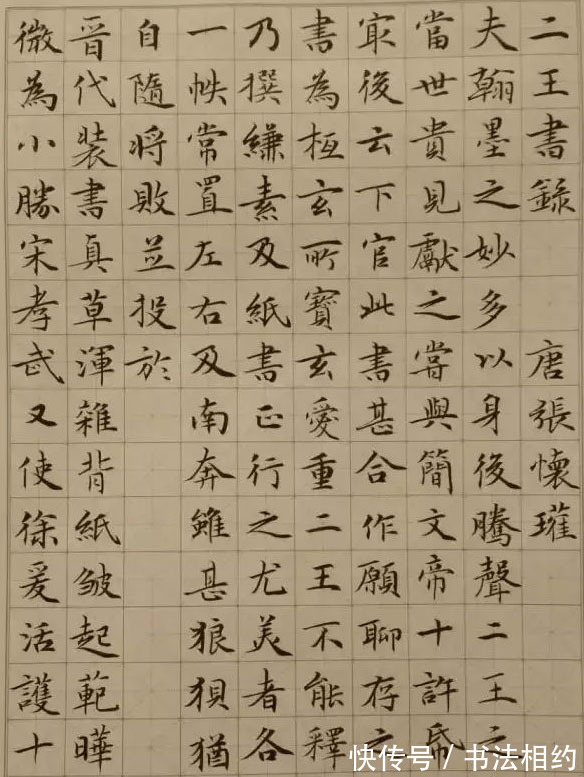 二王書錄 唐張懷瓘
夫翰墨之妙多以身後騰聲二王之
當世貴見獻之嘗與簡文帝十許帋
冣後云下官此書甚合作願聊存之
書為桓玄所寶玄愛重二王不能釋
乃撰縑素及紙書正行之尤美者各
一帙常置左右及南奔雖甚狼狽猶
自隨將敗並投於
晉代裝書真草渾雜背紙皺起範曄
微為小勝宋孝武又使徐爰活護十
快传号 / 书法相约